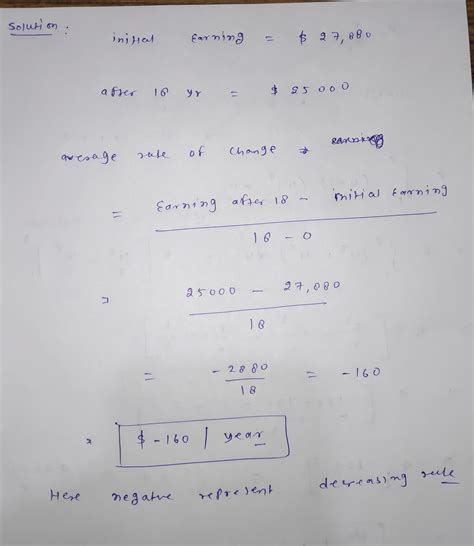 Solution :
initial earning = $ 27,880
after 18 yr = $ 25000
average rate of change →
= Earning after 18 - initial Earning
18 - 0
⇒ 25000 - 27,880
18
= - 2880 = -160
18
$ -160 / year
Here negative represent decreasing rate